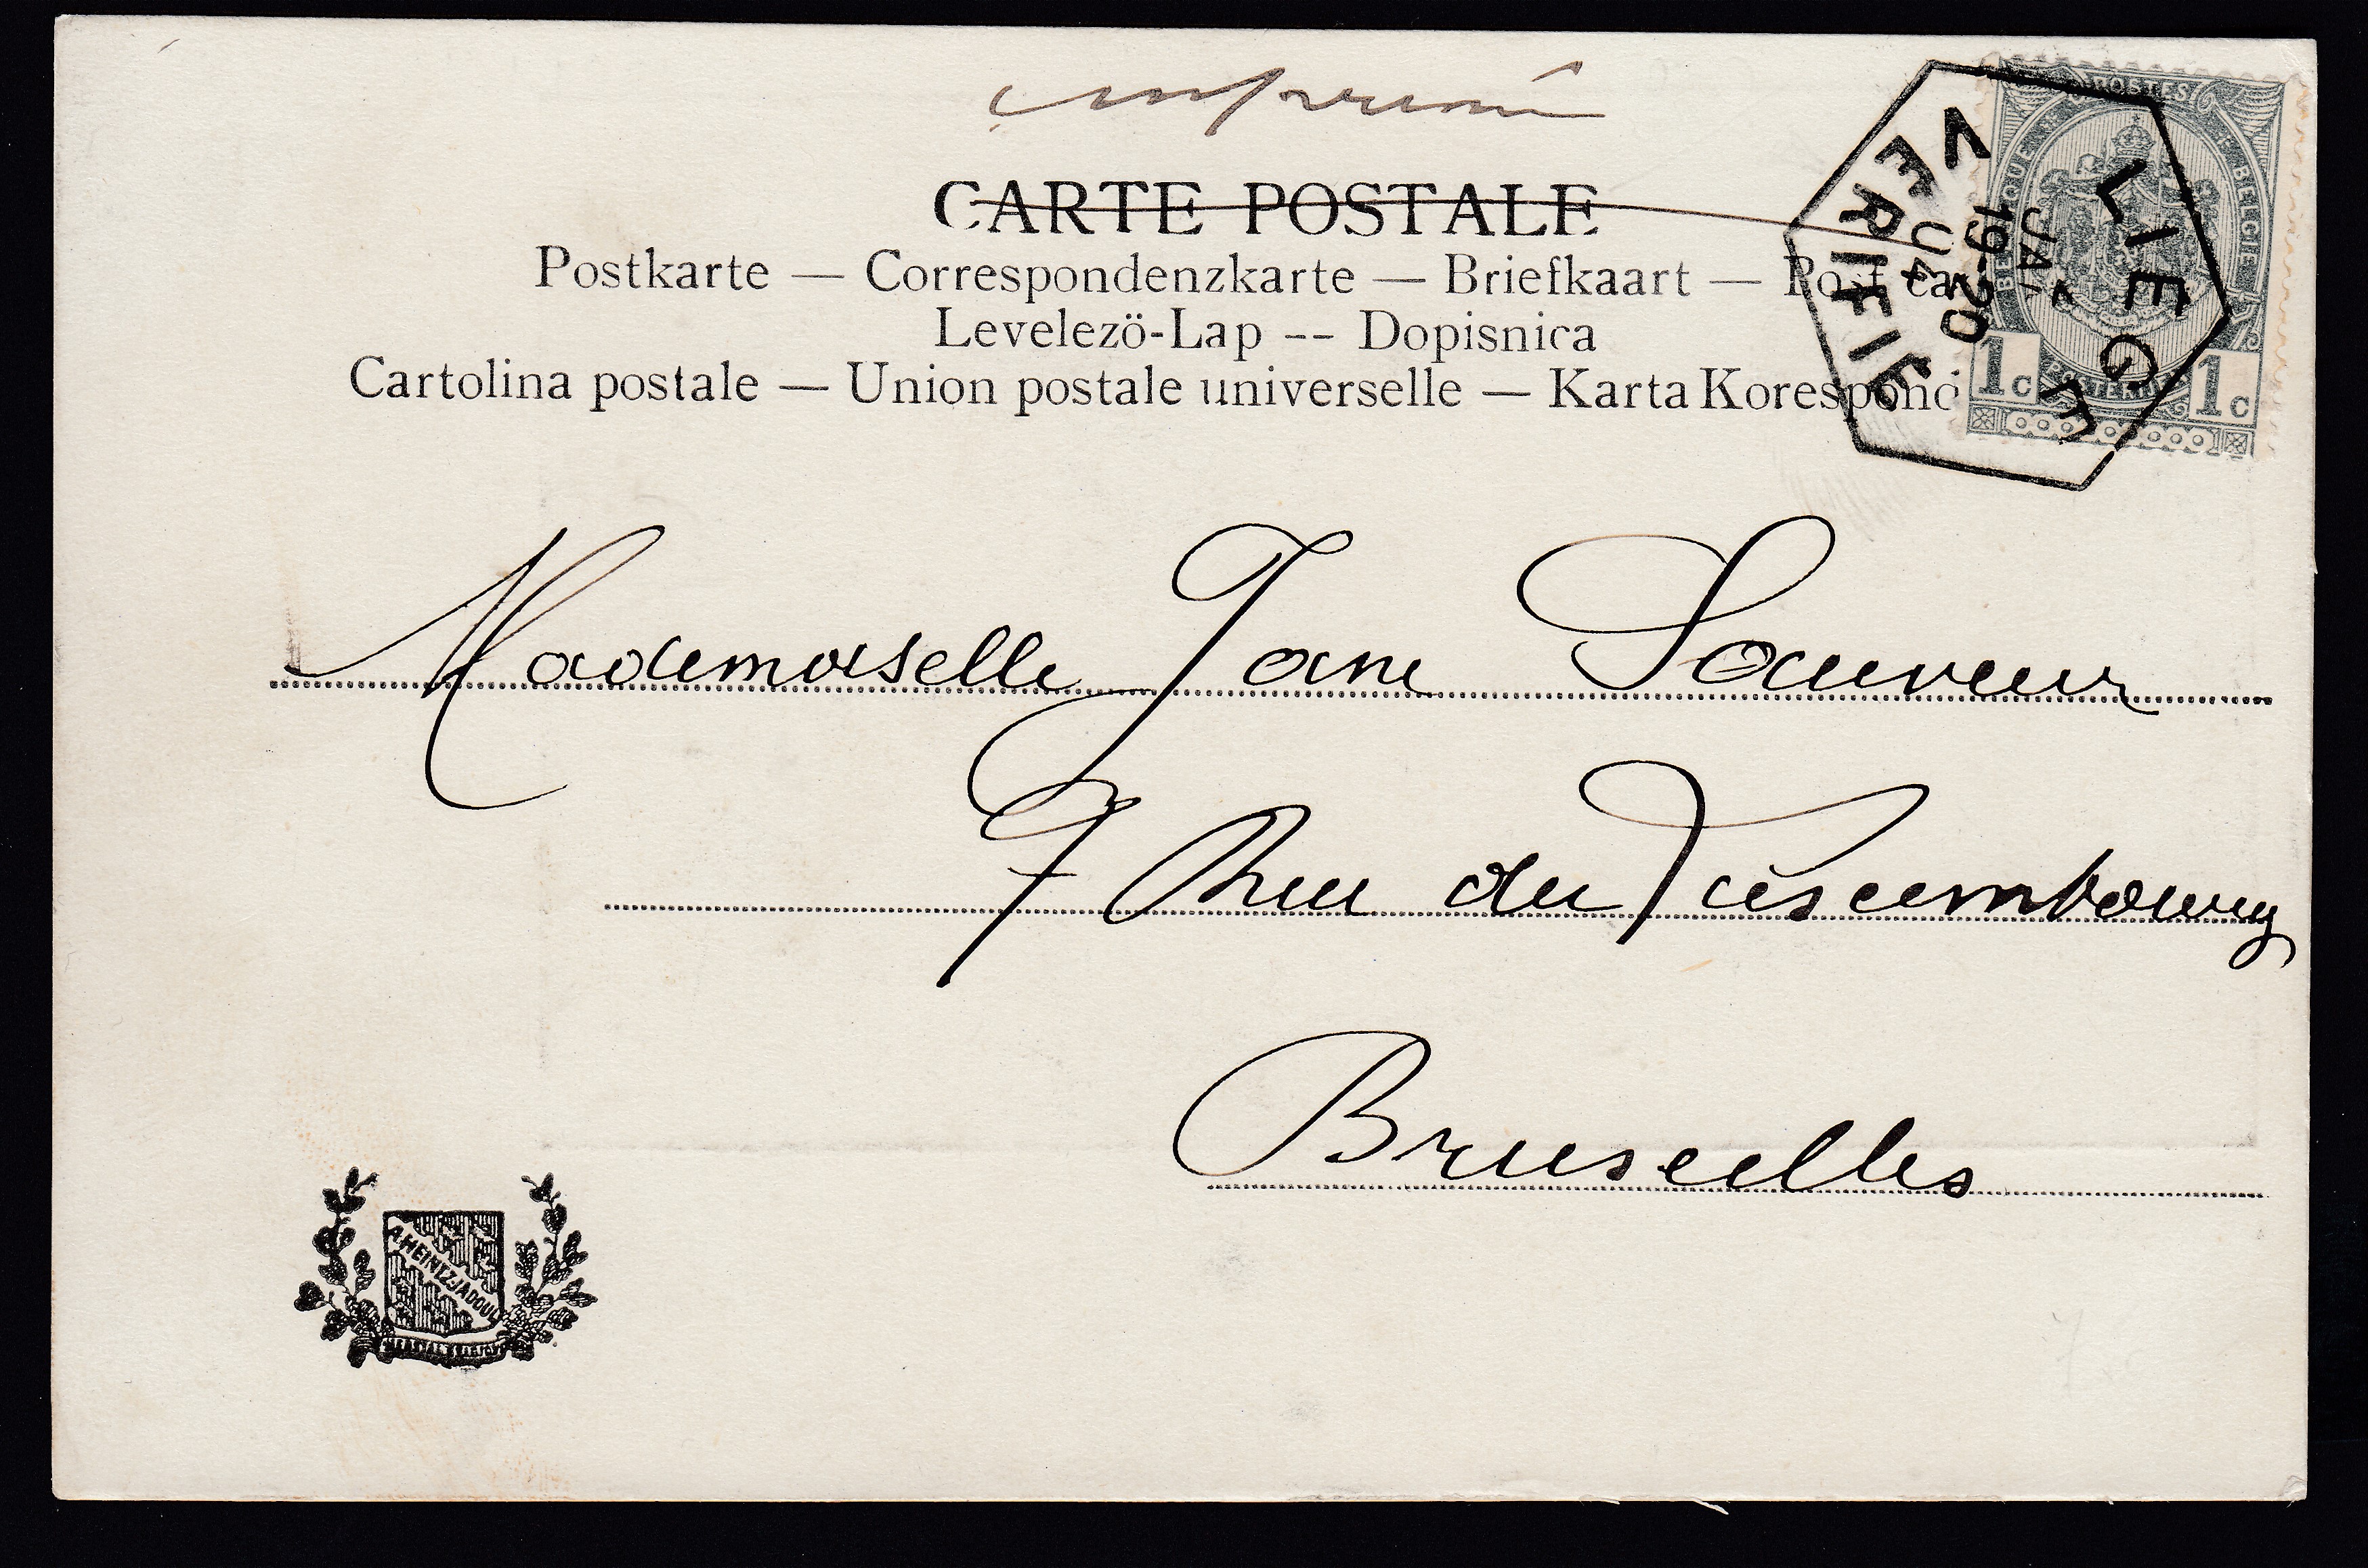 imprimé
POSTES
BELGIQUE
BELGIË
POSTERIJEN
1c 1c
LIEGE
JAN
19-20
04
VERIFIE
CARTE POSTALE
Postkarte — Correspondenzkarte — Briefkaart — Post ca
Levelezö-Lap -- Dopisnica
Cartolina postale — Union postale universelle — Karta Korespond
Mademoiselle Jane Sauveur
7 Rue du Luxembourg
Bruxelles
A.HEINTZ-JADOUL
HERSTAL